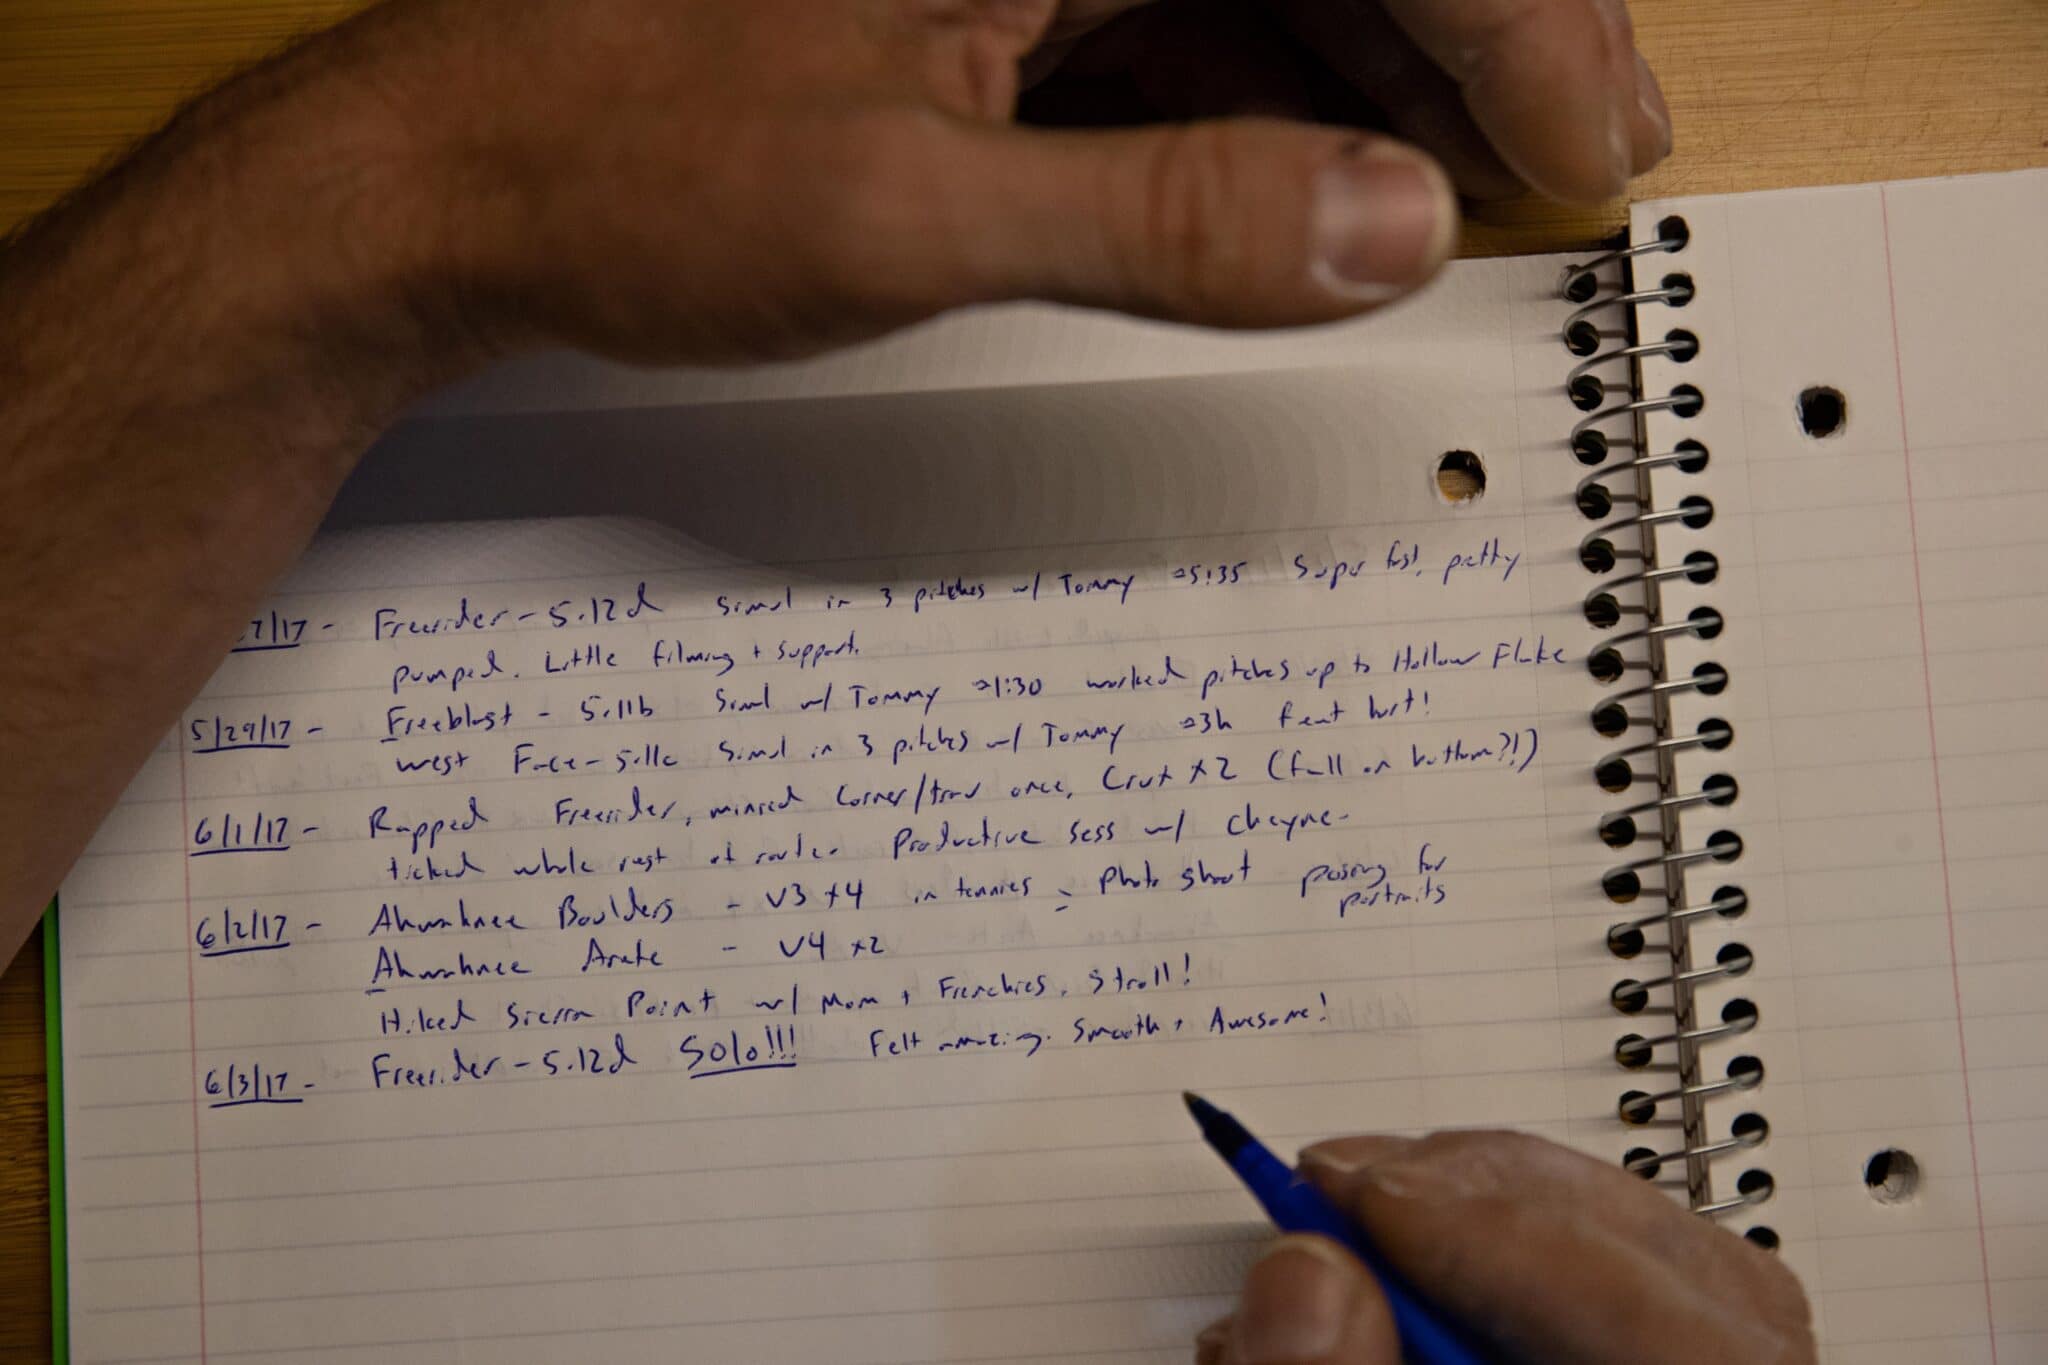 7/17 - Freerider - 5.12d Simul in 3 pitches w/ Tommy ≈5:35 Super fast, pretty
pumped. Little filming + support.
5/29/17 - Freeblast - 5.11b Simul w/ Tommy ≈1:30 worked pitches up to Hollow Flake
West Face - 5.11c Simul in 3 pitches w/ Tommy ≈3h feat hurt!
6/1/17 - Rapped Freerider, minied corner/trav once, Crux x2 (fall on bottom?!)
ticked whole rest of route. Productive sess w/ Cheyne.
6/2/17 - Ahwahnee Boulders - V3 x4 in tennies = Photo shoot posing for
portraits
Ahwahnee Arete - V4 x2
Hiked Sierra Point w/ Mom + Frenchies. Stroll!
6/3/17 - Freerider - 5.12d Solo!!! Felt amazing. Smooth + Awesome!